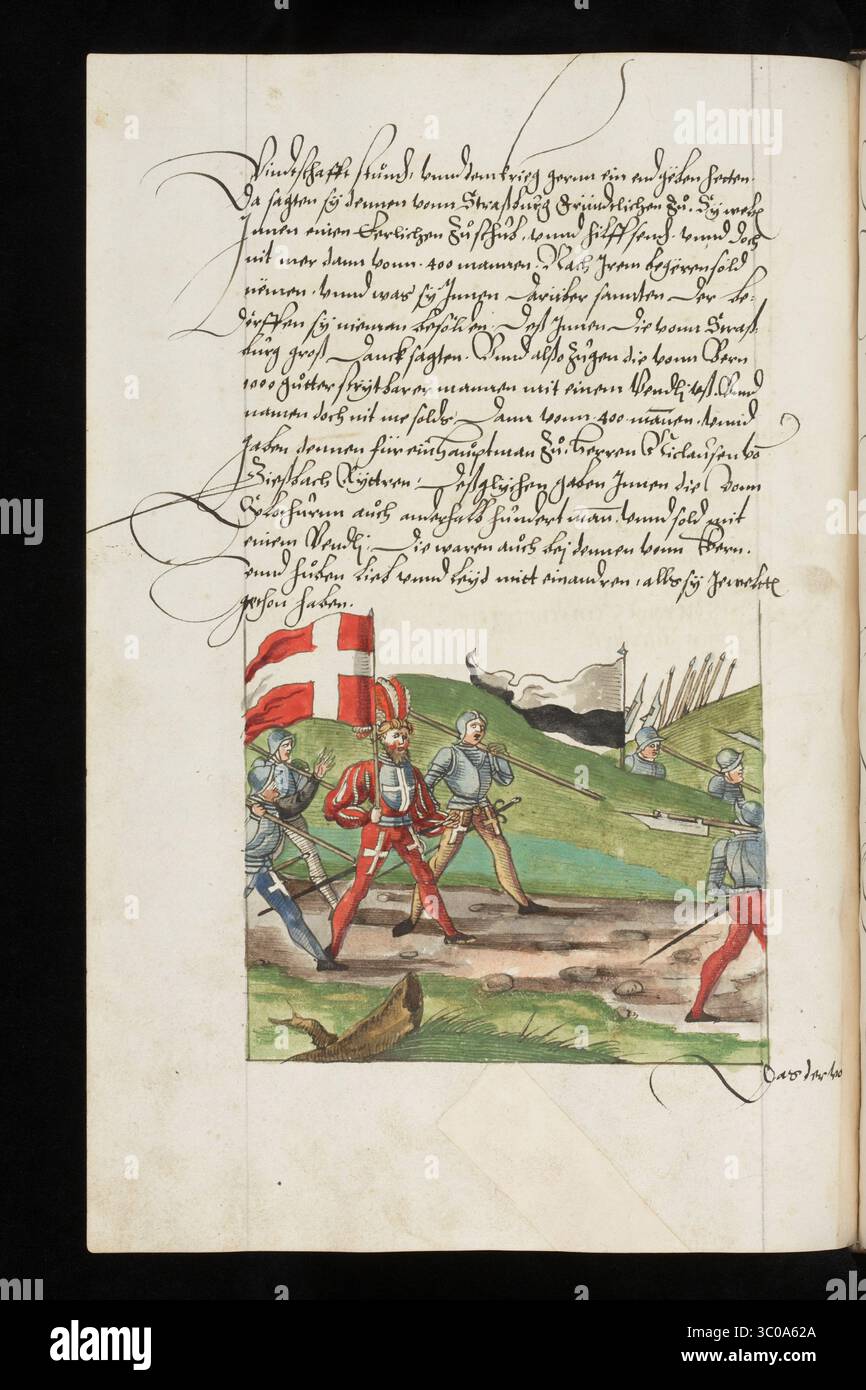 Vindtschafft stůnd, vnnd dem krieg gernn ein end gëben hetten.
Da sagten sÿ dennen vonn Straßburg gründtlichen zů. Sÿ welten
Innen einen Eerlichen zůschůb, vnnd hilff send. vnnd doch
nit mer dann vonn .400 mannen. Nach Irem begërren sold
nëmen. vnnd was sÿ Innen darüber sannten. Der be-
dörfften sÿ nieman besölden. Deß Innen die vonn Straß-
burg groß Danck sagten. Vnnd also zugen die vonn Bern
1000 gůtter strÿtbarer mannen mit einem Vendli vß. Vnd
namen doch nit me solds. Dann vonn .400. mannen. vnnd
gaben dennen für ein houptman zů. Herren Niclausen vo
Diesbach Rÿttren. Deßglÿchen gaben Innen die vonn
Solothurnn auch anderhalb hundert mann. vnnd sold mit
einem Vendli. Die waren auch bei dennen vonn Bern.
vnnd huben lieb vnnd leÿd mitt einandren, alls sÿ Jewelten
gethon haben.
Das der vo
alamy
Image ID: 3C0A62A
www.alamy.com